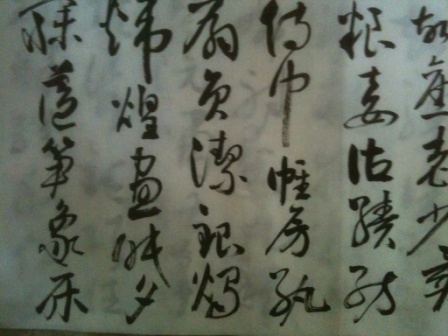 故舊老少異
粮妾御績紡
侍巾帷房紈
扇員潔銀燭
煒煌晝眠夕
寐藍笋象床